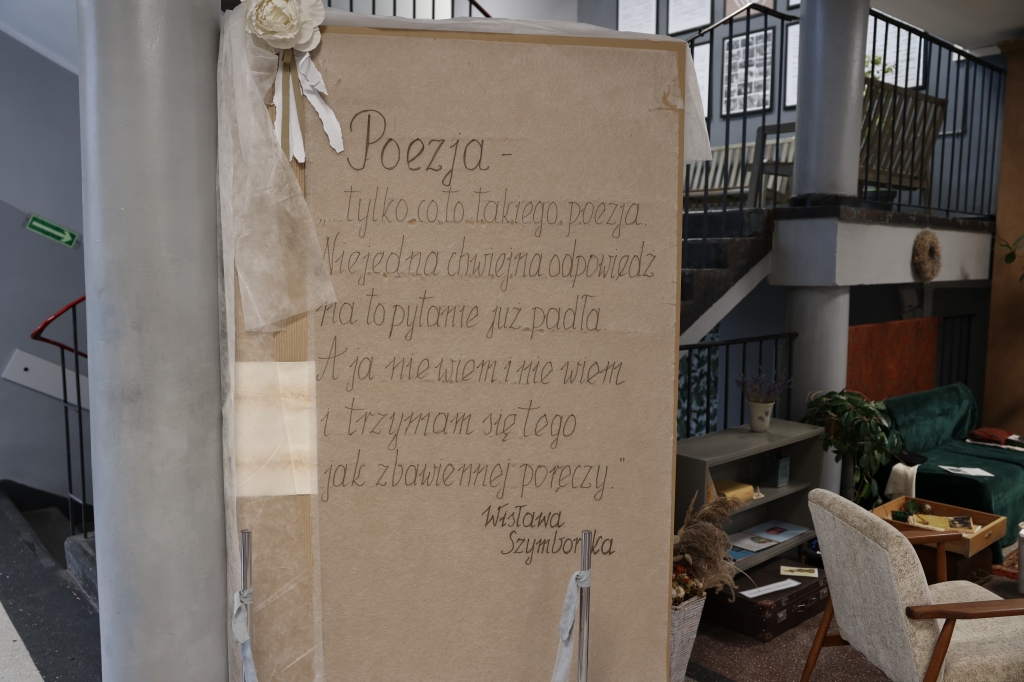 Poezja -
„... tylko co to takiego poezja.
Niejedna chwiejna odpowiedź
na to pytanie już padła.
A ja nie wiem i nie wiem
i trzymam się tego
jak zbawiennej poręczy."
Wisława
Szymborska